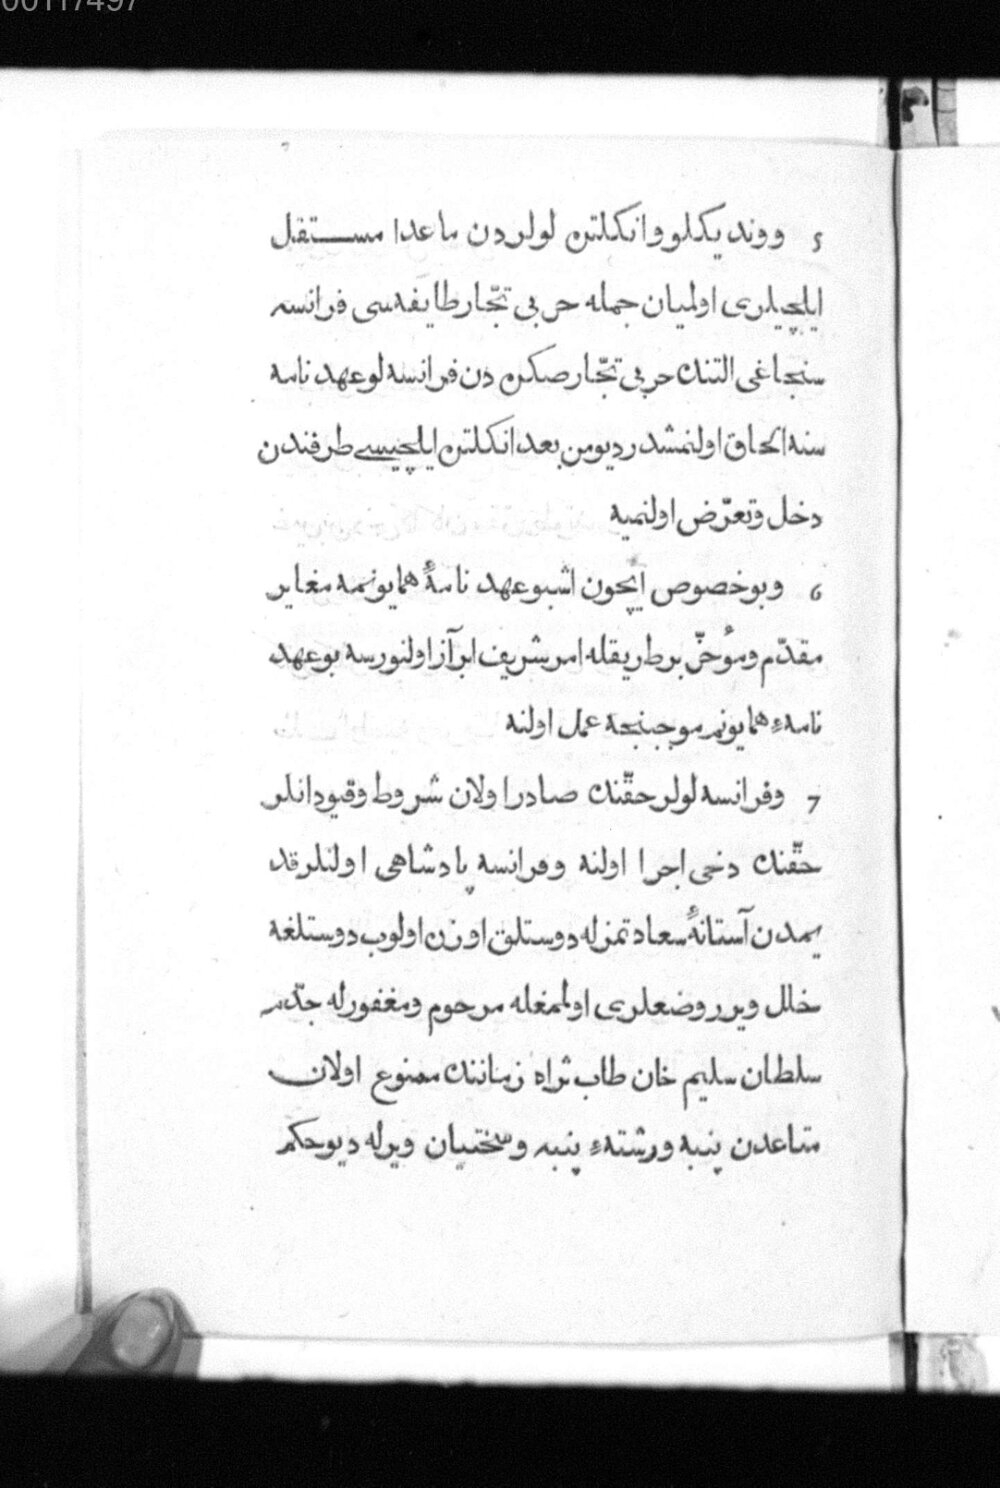 00117497
5 ووندیكلو وانكلتره لولردن ماعدا مستقل
ایلچیلری اولمیان جمله حربی تجّار طایفه‌سی فرانسه
سنجاغی التنده حربی تجّار صكره دن فرانسه لو عهد نامه
سنه الحاق اولنمشدر دیو من بعد انكلتره ایلچیسی طرفندن
دخل وتعرّض اولنمیه
6 وبو خصوص ایچون اشبو عهد نامهٔ همایونمه مغایر
مقدّم ومؤخّر بر طریقله امر شریف ابراز اولنورسه بو عهد
نامهء همایونم موجبنجه عمل اولنه
7 وفرانسه لولر حقّنده صادر اولان شروط وقیود انلر
حقّنده دخی اجرا اولنه وفرانسه پادشاهی اولنلر قد
یمدن آستانهٔ سعادتمزله دوستلق اوزره اولوب دوستلغه
خلل ویرر وضعلری اولمغله مرحوم ومغفورله جدّم
سلطان سلیم خان طاب ثراه زماننده ممنوع اولان
متاعدن پنبه ورشتهء پنبه وسختیان ویرله دیو حكم